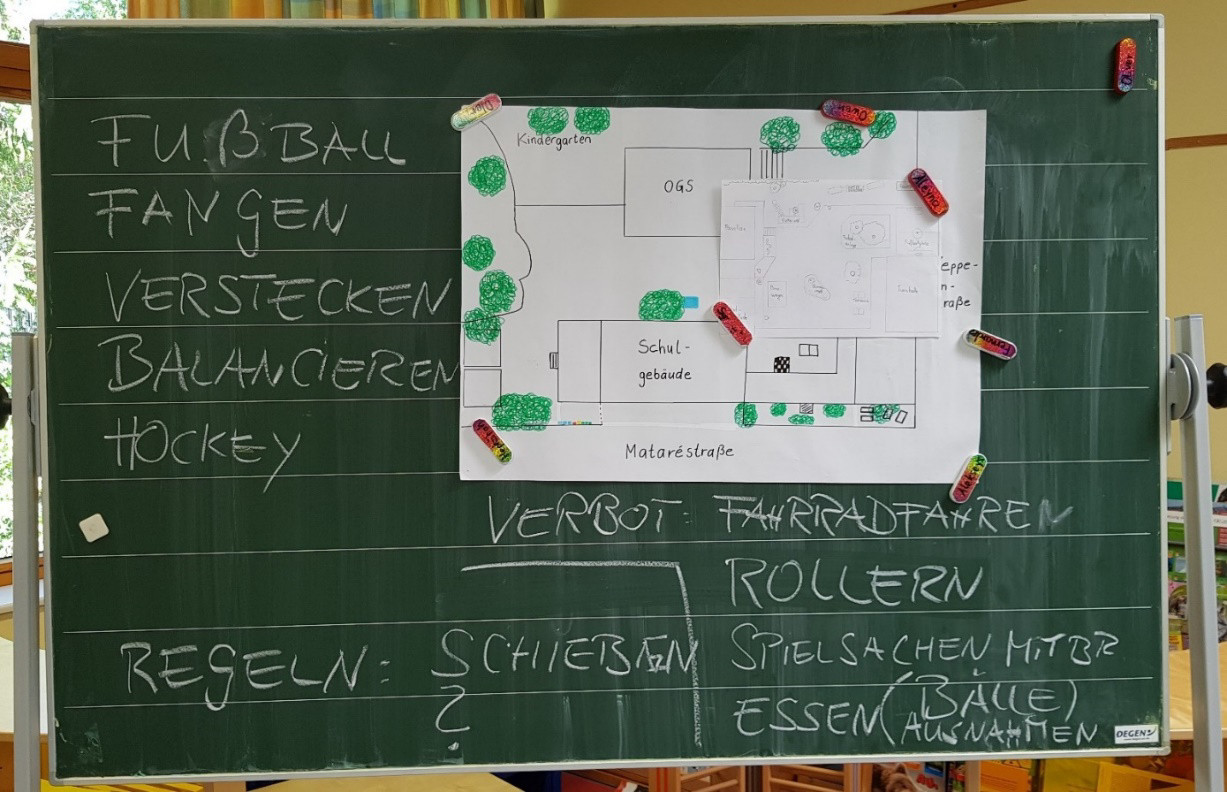 FUßBALL
FANGEN
VERSTECKEN
BALANCIEREN
HOCKEY
Kindergarten
OGS
eppe-
n-
raße
Schul-
gebäude
Mataréstraße
VERBOT: FAHRRADFAHREN
ROLLERN
REGELN: SCHIEBEN
SPIELSACHEN MITBR
?
ESSEN (BÄLLE)
AUSNAHMEN
DEGEN